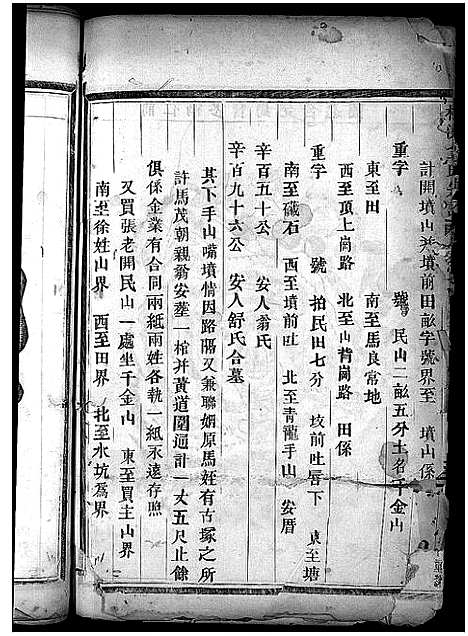 計開墳山並墳前田畝字號界至　墳山係
重字　號　民山二畝五分土名千金山
東至田　南至馬良常地
西至頂上崗路　北至山背崗路　田係
重字　號　拍民田七分　坟前吐唇下　東至塘
南至磩石　西至墳前吐　北至青龍手山　安厝
辛百五十公　安人翁氏
辛百九十六公　安人舒氏合墓
其下手山嘴墳情因路隔又兼聯姻原馬姓有古塚之所
許馬茂朝親翁安葬一棺并黃道圍通計一丈五尺止餘
俱係金業有合同兩紙兩姓各執一紙永遠存照
又買張老開民山一處坐千金山　東至買主山界
南至徐姓山界　西至田界　北至水坑為界